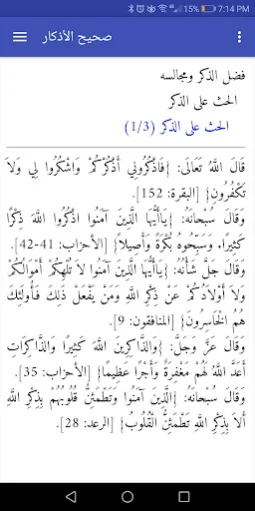 15% 7:14 PM
صحيح الأذكار
فضل الذكر ومجالسه
الحث على الذكر
الحث على الذكر (1/3)
قَالَ اللَّهُ تَعَالَى: {فَاذْكُرُونِي أَذْكُرْكُمْ وَاشْكُرُوا لِي وَلَا
تَكْفُرُونِ} [البقرة: 152].
وَقَالَ سُبْحَانَهُ: {يَاأَيُّهَا الَّذِينَ آمَنُوا اذْكُرُوا اللَّهَ ذِكْرًا
كَثِيرًا، وَسَبِّحُوهُ بُكْرَةً وَأَصِيلًا} [الأحزاب: 41-42].
وَقَالَ جَلَّ شَأْنُهُ: {يَاأَيُّهَا الَّذِينَ آمَنُوا لَا تُلْهِكُمْ أَمْوَالُكُمْ
وَلَا أَوْلَادُكُمْ عَنْ ذِكْرِ اللَّهِ وَمَنْ يَفْعَلْ ذَلِكَ فَأُولَئِكَ
هُمُ الْخَاسِرُونَ} [المنافقون: 9].
وَقَالَ عَزَّ وَجَلَّ: {وَالذَّاكِرِينَ اللَّهَ كَثِيرًا وَالذَّاكِرَاتِ
أَعَدَّ اللَّهُ لَهُمْ مَغْفِرَةً وَأَجْرًا عَظِيمًا} [الأحزاب: 35].
وَقَالَ سُبْحَانَهُ: {الَّذِينَ آمَنُوا وَتَطْمَئِنُّ قُلُوبُهُمْ بِذِكْرِ اللَّهِ
أَلَا بِذِكْرِ اللَّهِ تَطْمَئِنُّ الْقُلُوبُ} [الرعد: 28].